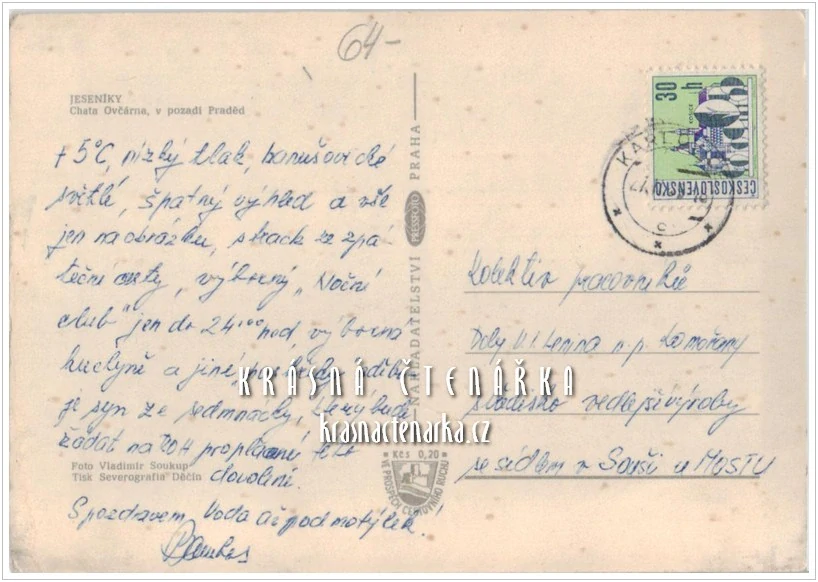 64-
JESENÍKY
Chata Ovčárna, v pozadí Praděd
+5°C, nízký tlak, hanušovické
světlé, špatný výhled a vše
jen na obrázku, strach ze zpá
teční cesty, výborný „Noční
club" jen do 24·00 hod, výborna
kuchyně a jiné
je syn ze sedmnáctky, který bude
žádat na ROH proplacení této
dovolení.
S pozdravem, Voda až pod motýlek!
Foto Vladimír Soukup
Tisk Severografia Děčín
NAKLADATELSTVÍ PRESSFOTO PRAHA
Kčs 0,20
VE PROSPĚCH CESTOVNÍHO RUCHU
30 h
KOŠICE
ČESKOSLOVENSKO
KARL
Kolektiv pracovníků
Doly V. I. Lenina n. p. Komořany
středisko vedlejší výroby
se sídlem v Souši u MOSTU
KRÁSNÁ ČTENÁŘKA
krasnactenarka.cz